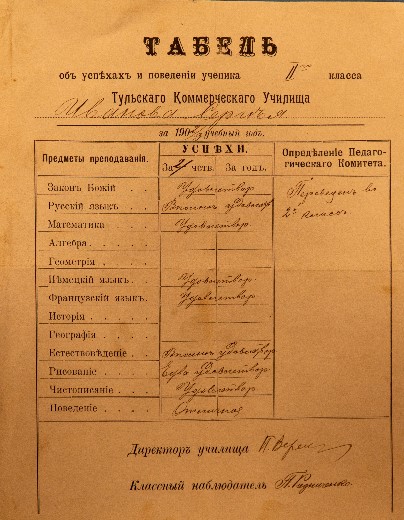 ТАБЕЛЬ
объ успѣхахъ и поведеніи ученика II го класса
Тульскаго Коммерческаго Училища
Иванова Сергѣя
за 1902/3 учебный годъ.
Предметы преподаванія. УСПѢХИ. Опредѣленіе Педагогическаго Комитета.
За чств. За годъ.
Законъ Божій Удовлетвор. Переведенъ во
Русскій языкъ Вполнѣ удовлетв. 2й классъ
Математика Удовлетвор.
Алгебра
Геометрія
Нѣмецкій языкъ Удовлетвор.
Французскій языкъ. Удовлетвор.
Исторія
Географія
Естествовѣдѣніе Вполнѣ удовлетвор.
Рисованіе Едва удовлетвор.
Чистописаніе Удовлетвор.
Поведеніе Отличное
Директоръ училища
Классный наблюдатель